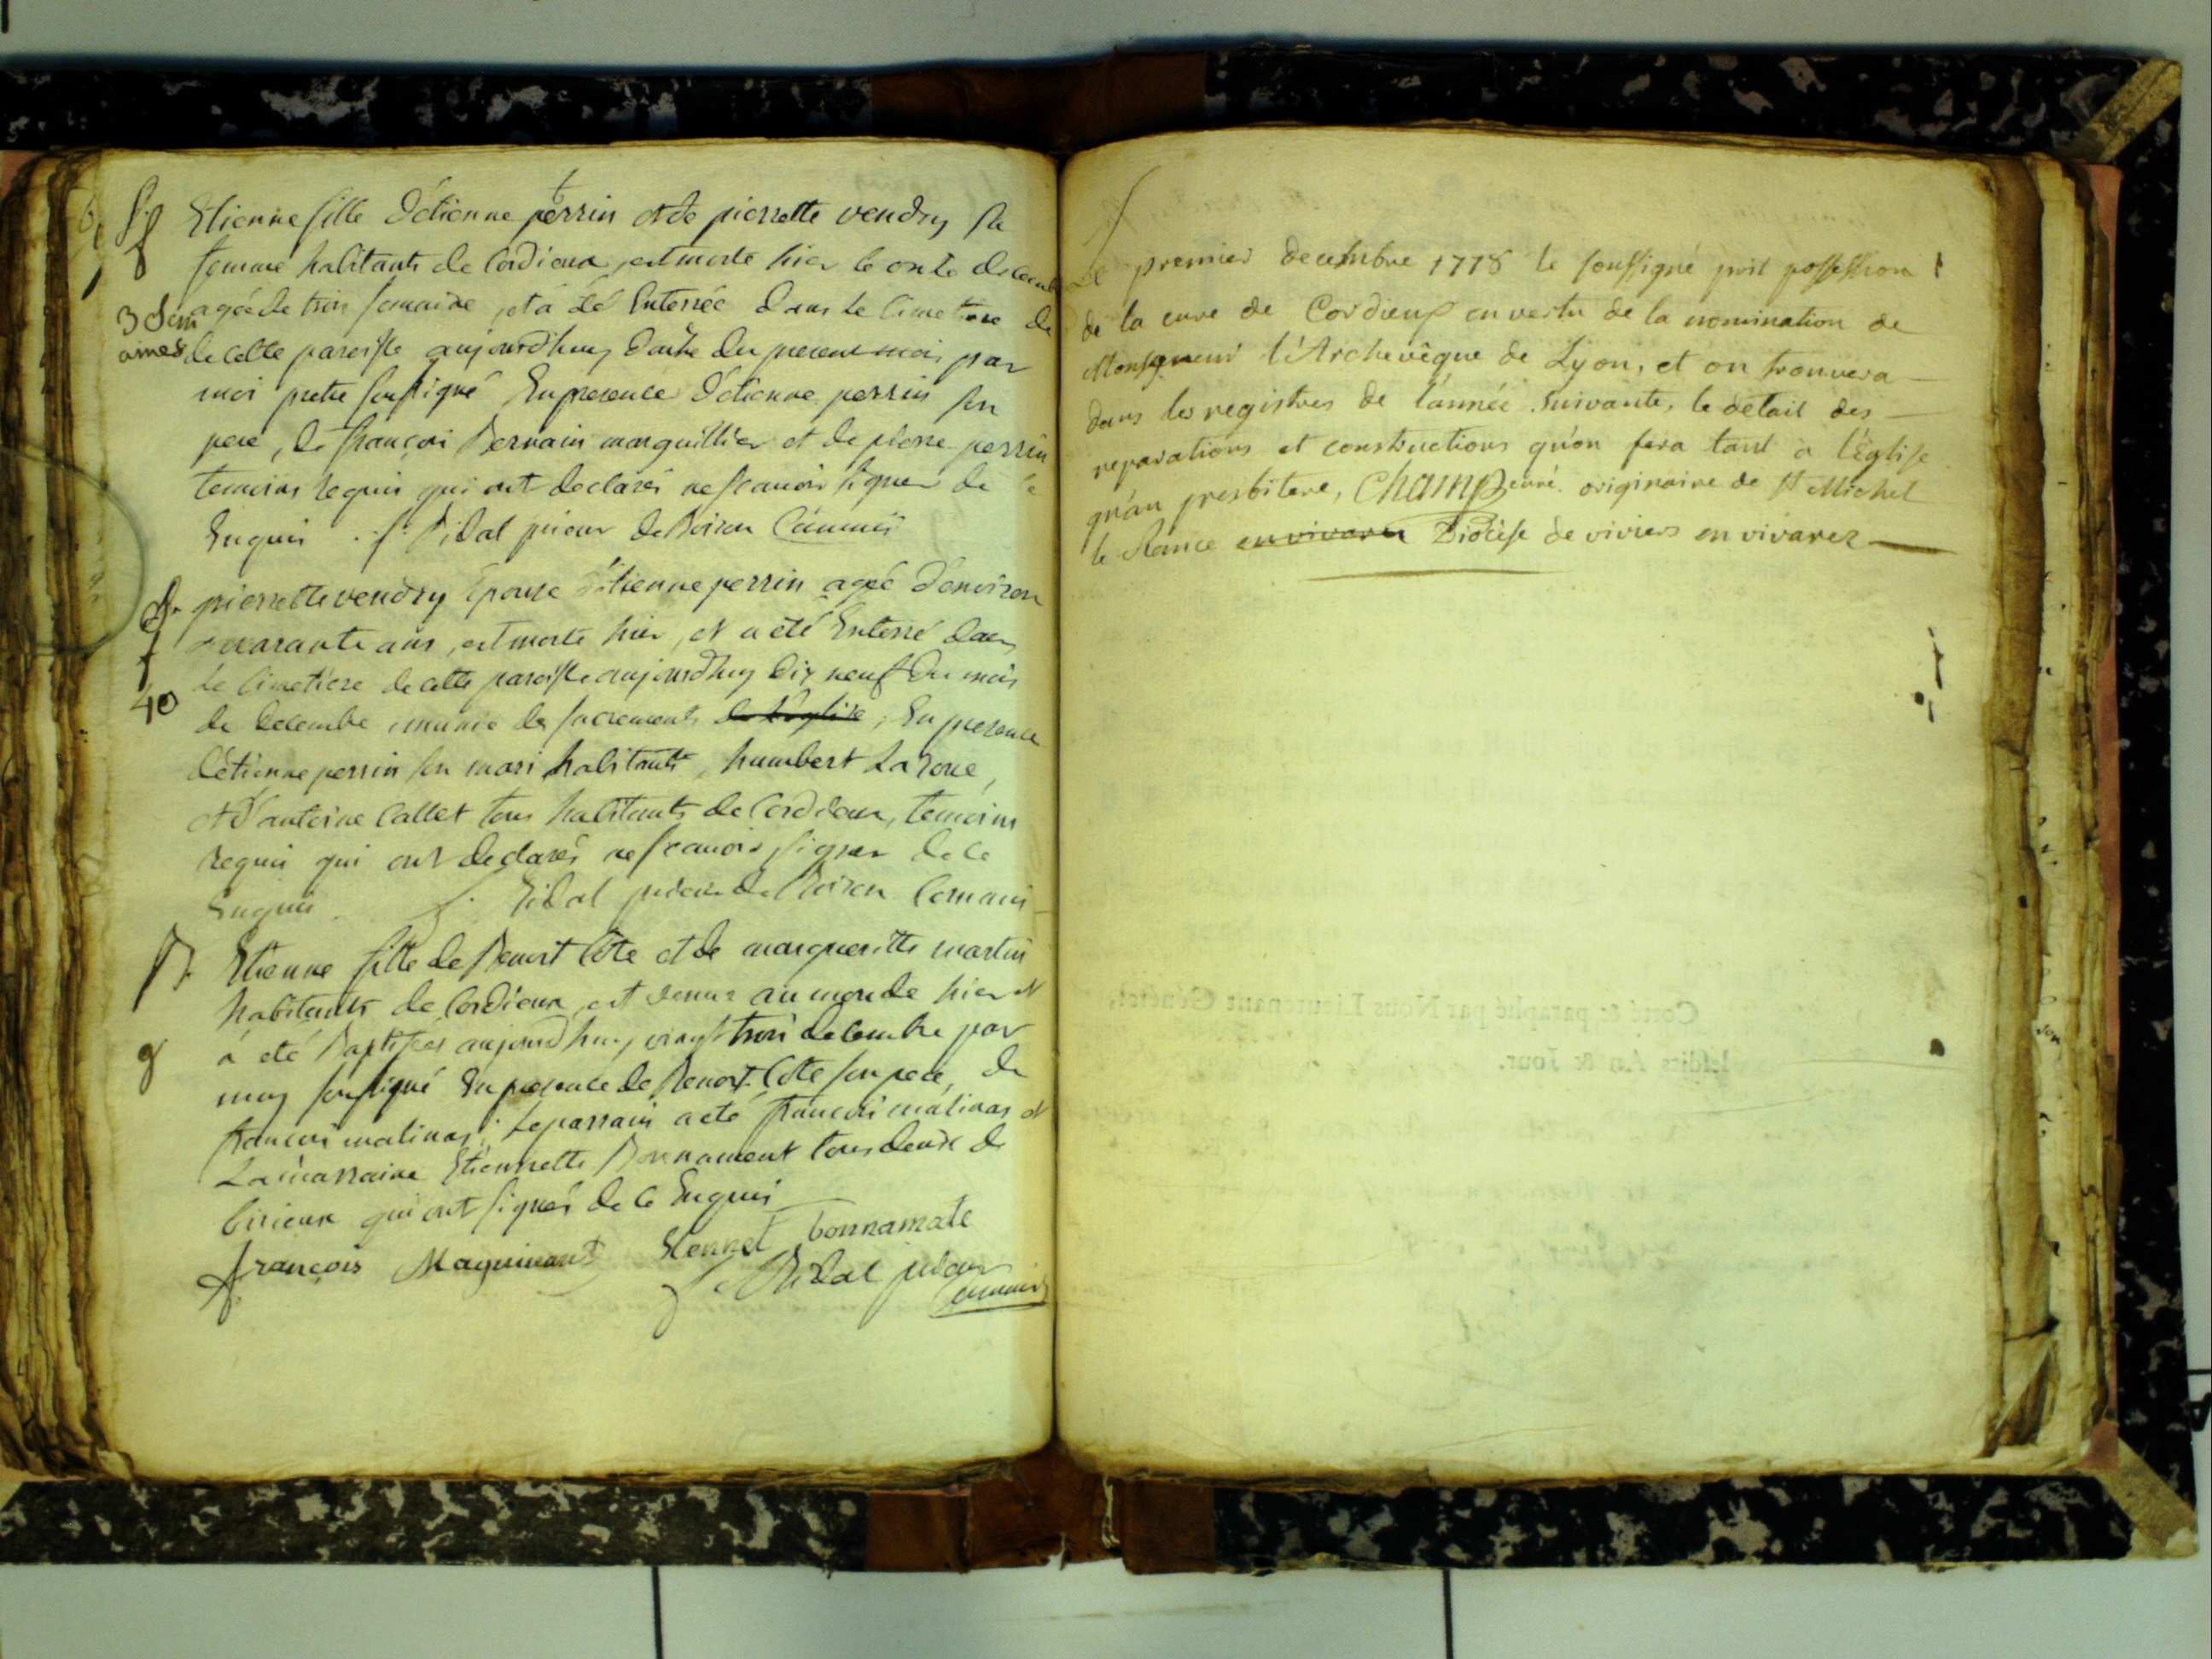 Etienne fille d'étienne perrin et de pierrette vendry sa
femme habitants de Cordieux, est morte hier le onze decemb
agée de trois semaine, et a été Enterrée dans le Cimetiere de
3 Sem
aines
de cette paroisse aujourd'huy douze du present mois par
moi pretre soussigné En presence d'étienne perrin son
pere, de françois Bernain marguillier et de pierre perrin
temoins requis qui ont declarés ne scavoir signer de ce
Enquis . f. Vidal prieur de Commis
pierrette vendry Epouse d'étienne perrin agée d'environ
40
quarante ans, est morte hier, et a été Enterré dans
le Cimetiere de cette paroisse aujourd'huy dix neuf du mois
de decembre munie des sacrements de l'église, En presence
d'étienne perrin son mari habitants, humbert Laroue,
et d'antoine Callet tous habitants de Cordieux, temoins
requis qui ont declarés ne scavoir signer de ce
Enquis f. Vidal prieur de Commis
B. Etienne fille de Benoit Côte et de margueritte martin
habitants de Cordieux, est venue au monde hier et
g à été Baptisée aujourd'huy vingt trois decembre par
moy soussigné En presence de Benoit Côte son pere, de
francois matinas; Le parrain a eté francois matinas et
La marraine Etiennette Bonnament tous deux de
birieux qui ont signés de ce Enquis
françois Maguinant Etennet bonnamate
f. Vidal prieur
Commis
Le premier decembre 1778 le soussigné prit possession
de la cure de Cordieux en vertu de la nomination de
Monsgneur l'Archevêque de Lyon, et on trouvera
dans les registres de l'année suivante, le détail des
reparations et constructions qu'on fera tant à l'Église
qu'au presbitere, Champ curé. originaire de St Michel
le Rance en vivarez Diocèse de viviers en vivarez
Coté & paraphé par Nous Lieutenant Général,
lesdits An & Jour.